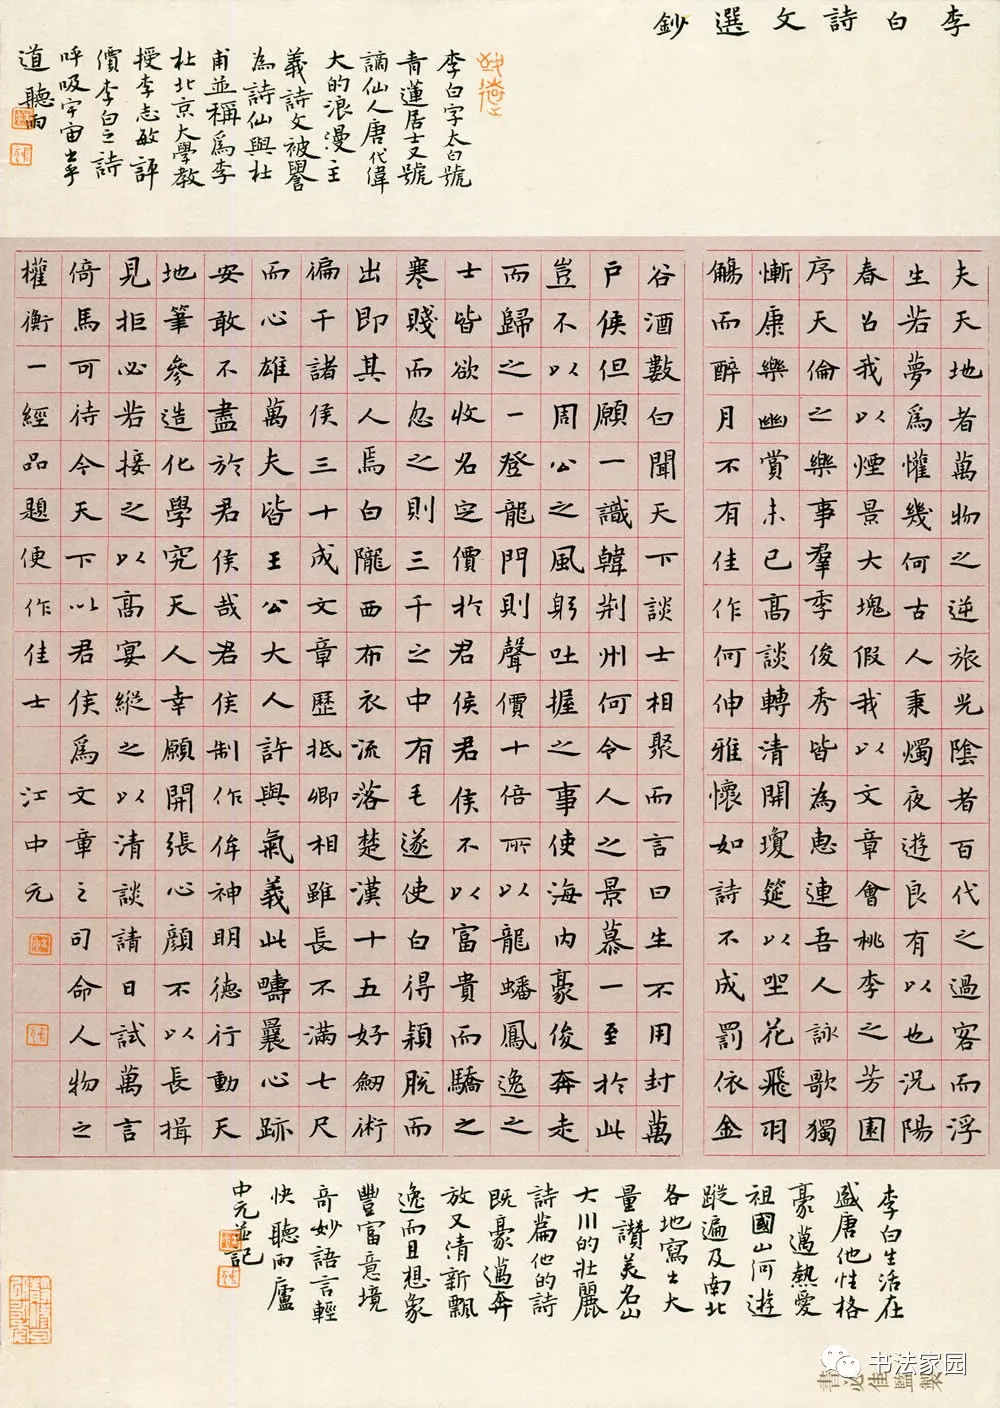 李白詩文選鈔
李白字太白號
青蓮居士又號
謫仙人唐代偉
大的浪漫主
義詩文被譽
為詩仙與杜
甫並稱爲李
杜北京大學教
授李志敏評
價李白之詩
呼吸宇宙出乎
道聽雨
夫天地者萬物之逆旅光陰者百代之過客而浮
生若夢爲懽幾何古人秉燭夜遊良有以也況陽
春召我以煙景大塊假我以文章會桃李之芳園
序天倫之樂事羣季俊秀皆為惠連吾人詠歌獨
慚康樂幽賞未已高談轉清開瓊筵以坐花飛羽
觴而醉月不有佳作何伸雅懷如詩不成罰依金
谷酒數白聞天下談士相聚而言曰生不用封萬
戶侯但願一識韓荊州何令人之景慕一至於此
豈不以周公之風躬吐握之事使海內豪俊奔走
而歸之一登龍門則聲價十倍所以龍蟠鳳逸之
士皆欲收名定價於君侯君侯不以富貴而驕之
寒賤而忽之則三千之中有毛遂使白得穎脫而
出即其人焉白隴西布衣流落楚漢十五好劒術
徧干諸侯三十成文章歷抵卿相雖長不滿七尺
而心雄萬夫皆王公大人許與氣義此疇曩心跡
安敢不盡於君侯哉君侯制作侔神明德行動天
地筆參造化學究天人幸願開張心顏不以長揖
見拒必若接之以高宴縱之以清談請日試萬言
倚馬可待今天下以君侯爲文章之司命人物之
權衡一經品題便作佳士江中元
李白生活在
盛唐他性格
豪邁熱愛
祖國山河遊
蹤遍及南北
各地寫出大
量讚美名山
大川的壯麗
詩篇他的詩
既豪邁奔
放又清新飄
逸而且想象
豐富意境
奇妙語言輕
快聽雨廬
中元並記
书法家园